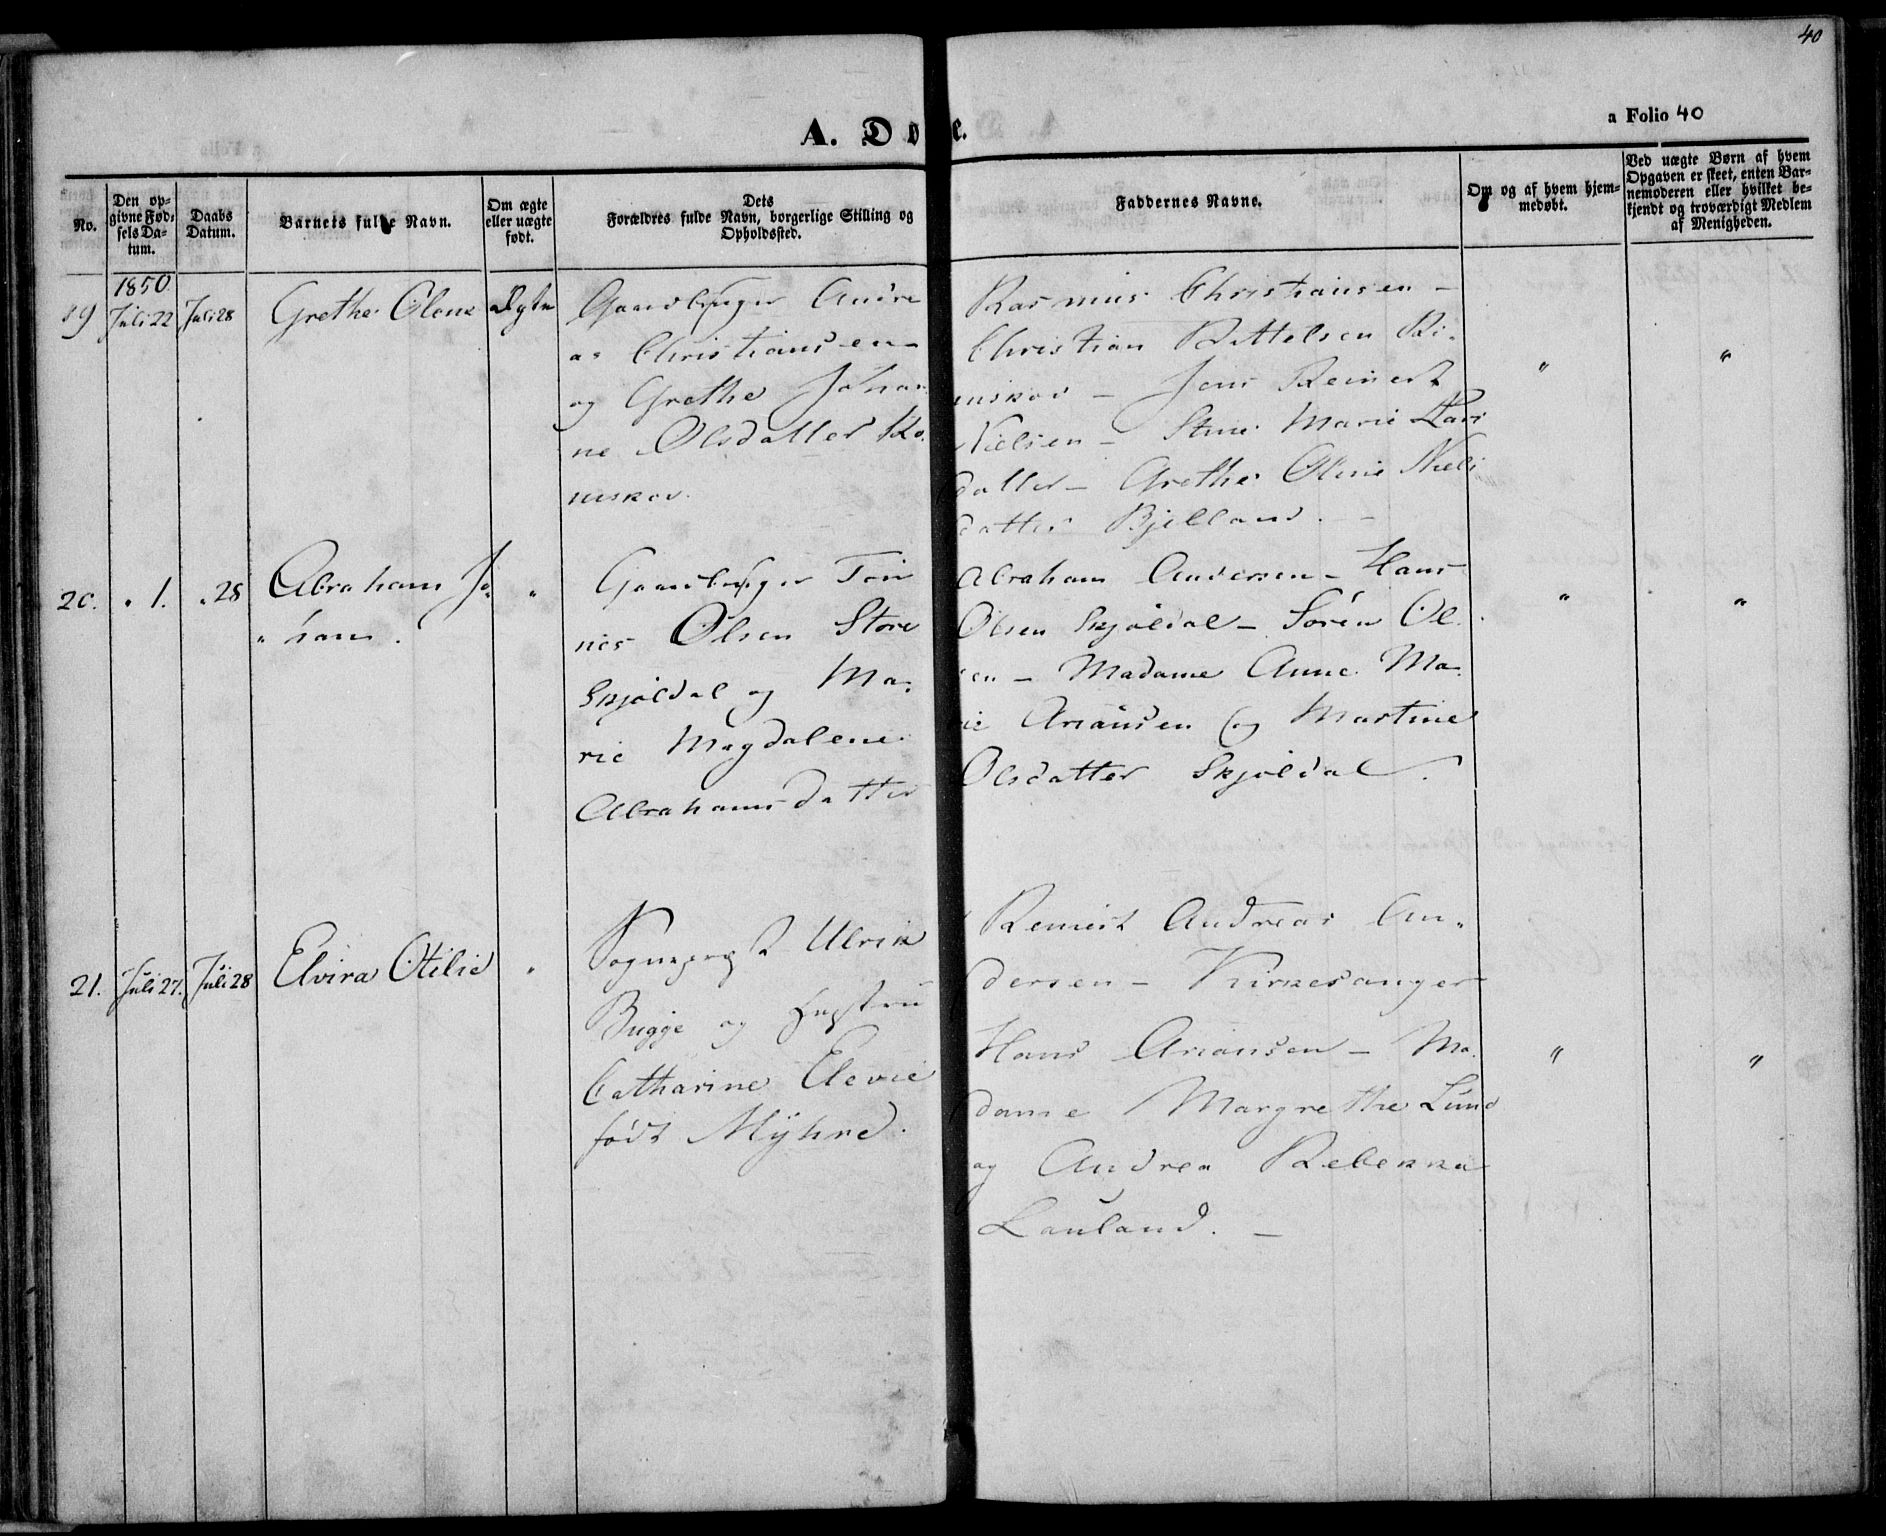 40
A. Dø e.
a Folio 40
No.
Den op-
givne Fød-
sels Da-
tum.
Daabs
Datum.
Barnets fulde Navn.
Om ægte
eller uægte
født.
Dets
Forældres fulde Navn, borgerlige Stilling og
Opholdssted.
Faddernes Navne.
Om og af hvem hjem-
medøbt.
Ved uægte Børn af hvem
Opgaven er skeet, enten Bar-
nemoderen eller hvilket be-
kjendt og troværdigt Medlem
af Menigheden.
1850
19 Juli 22 Juli 28 Grethe Olene Ægte
Gaardbruger Andre
as Christiansen
og Grethe Johan
ne Olsdatter Ro.
niskov.
Rasmus Christiansen -
Christian Kittelsen Ri.
niskov - Jens Reinert
Nielsen - Stine Marie Lars
datter - Grethe Olene Niels
datter Bjelland. -
" "
20. " 1. " 28 Abraham Jo
" han. "
Gaardbruger Tøn
nes Olsen Store
Skjøldal og Ma.
rie Magdalene
Abrahamsdatter
Abraham Andersen - Hans
Olsen Skjøldal - Søren Ol.
sen - Madame Anne Ma.
rie Ariansen og Martine
Olsdatter Skjøldal.
" "
21. Juli 27. Juli 28 Elvira Otilie "
Sogneprest Ulrik
Bugge og Hustru
Catharine Elevie
født Myhre.
Reinert Andreas An.
dersen - Kirkesanger
Hans Ariansen - Ma.
dame Margrethe Lund
og Andrea Rebekka
Lauland. -
" "